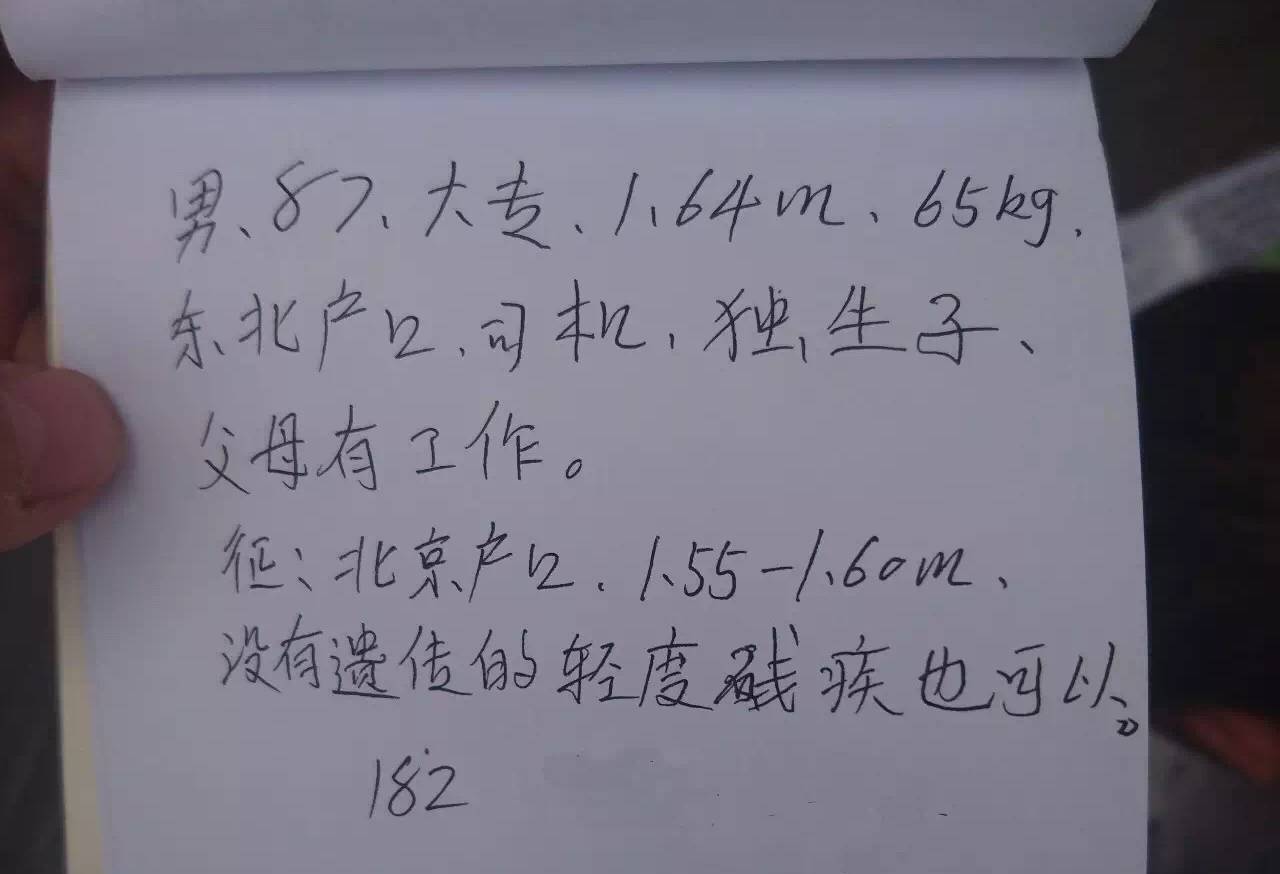 男、87、大专、1.64m、65kg、
东北户口、司机、独生子、
父母有工作。
征:北京户口、1.55-1.60m、
没有遗传的轻度残疾也可以。
182